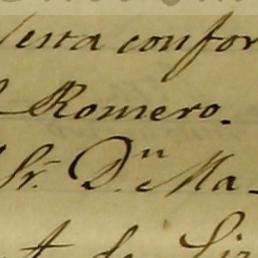 esta confor
Romero.
Sr. Dn. Ma-
de